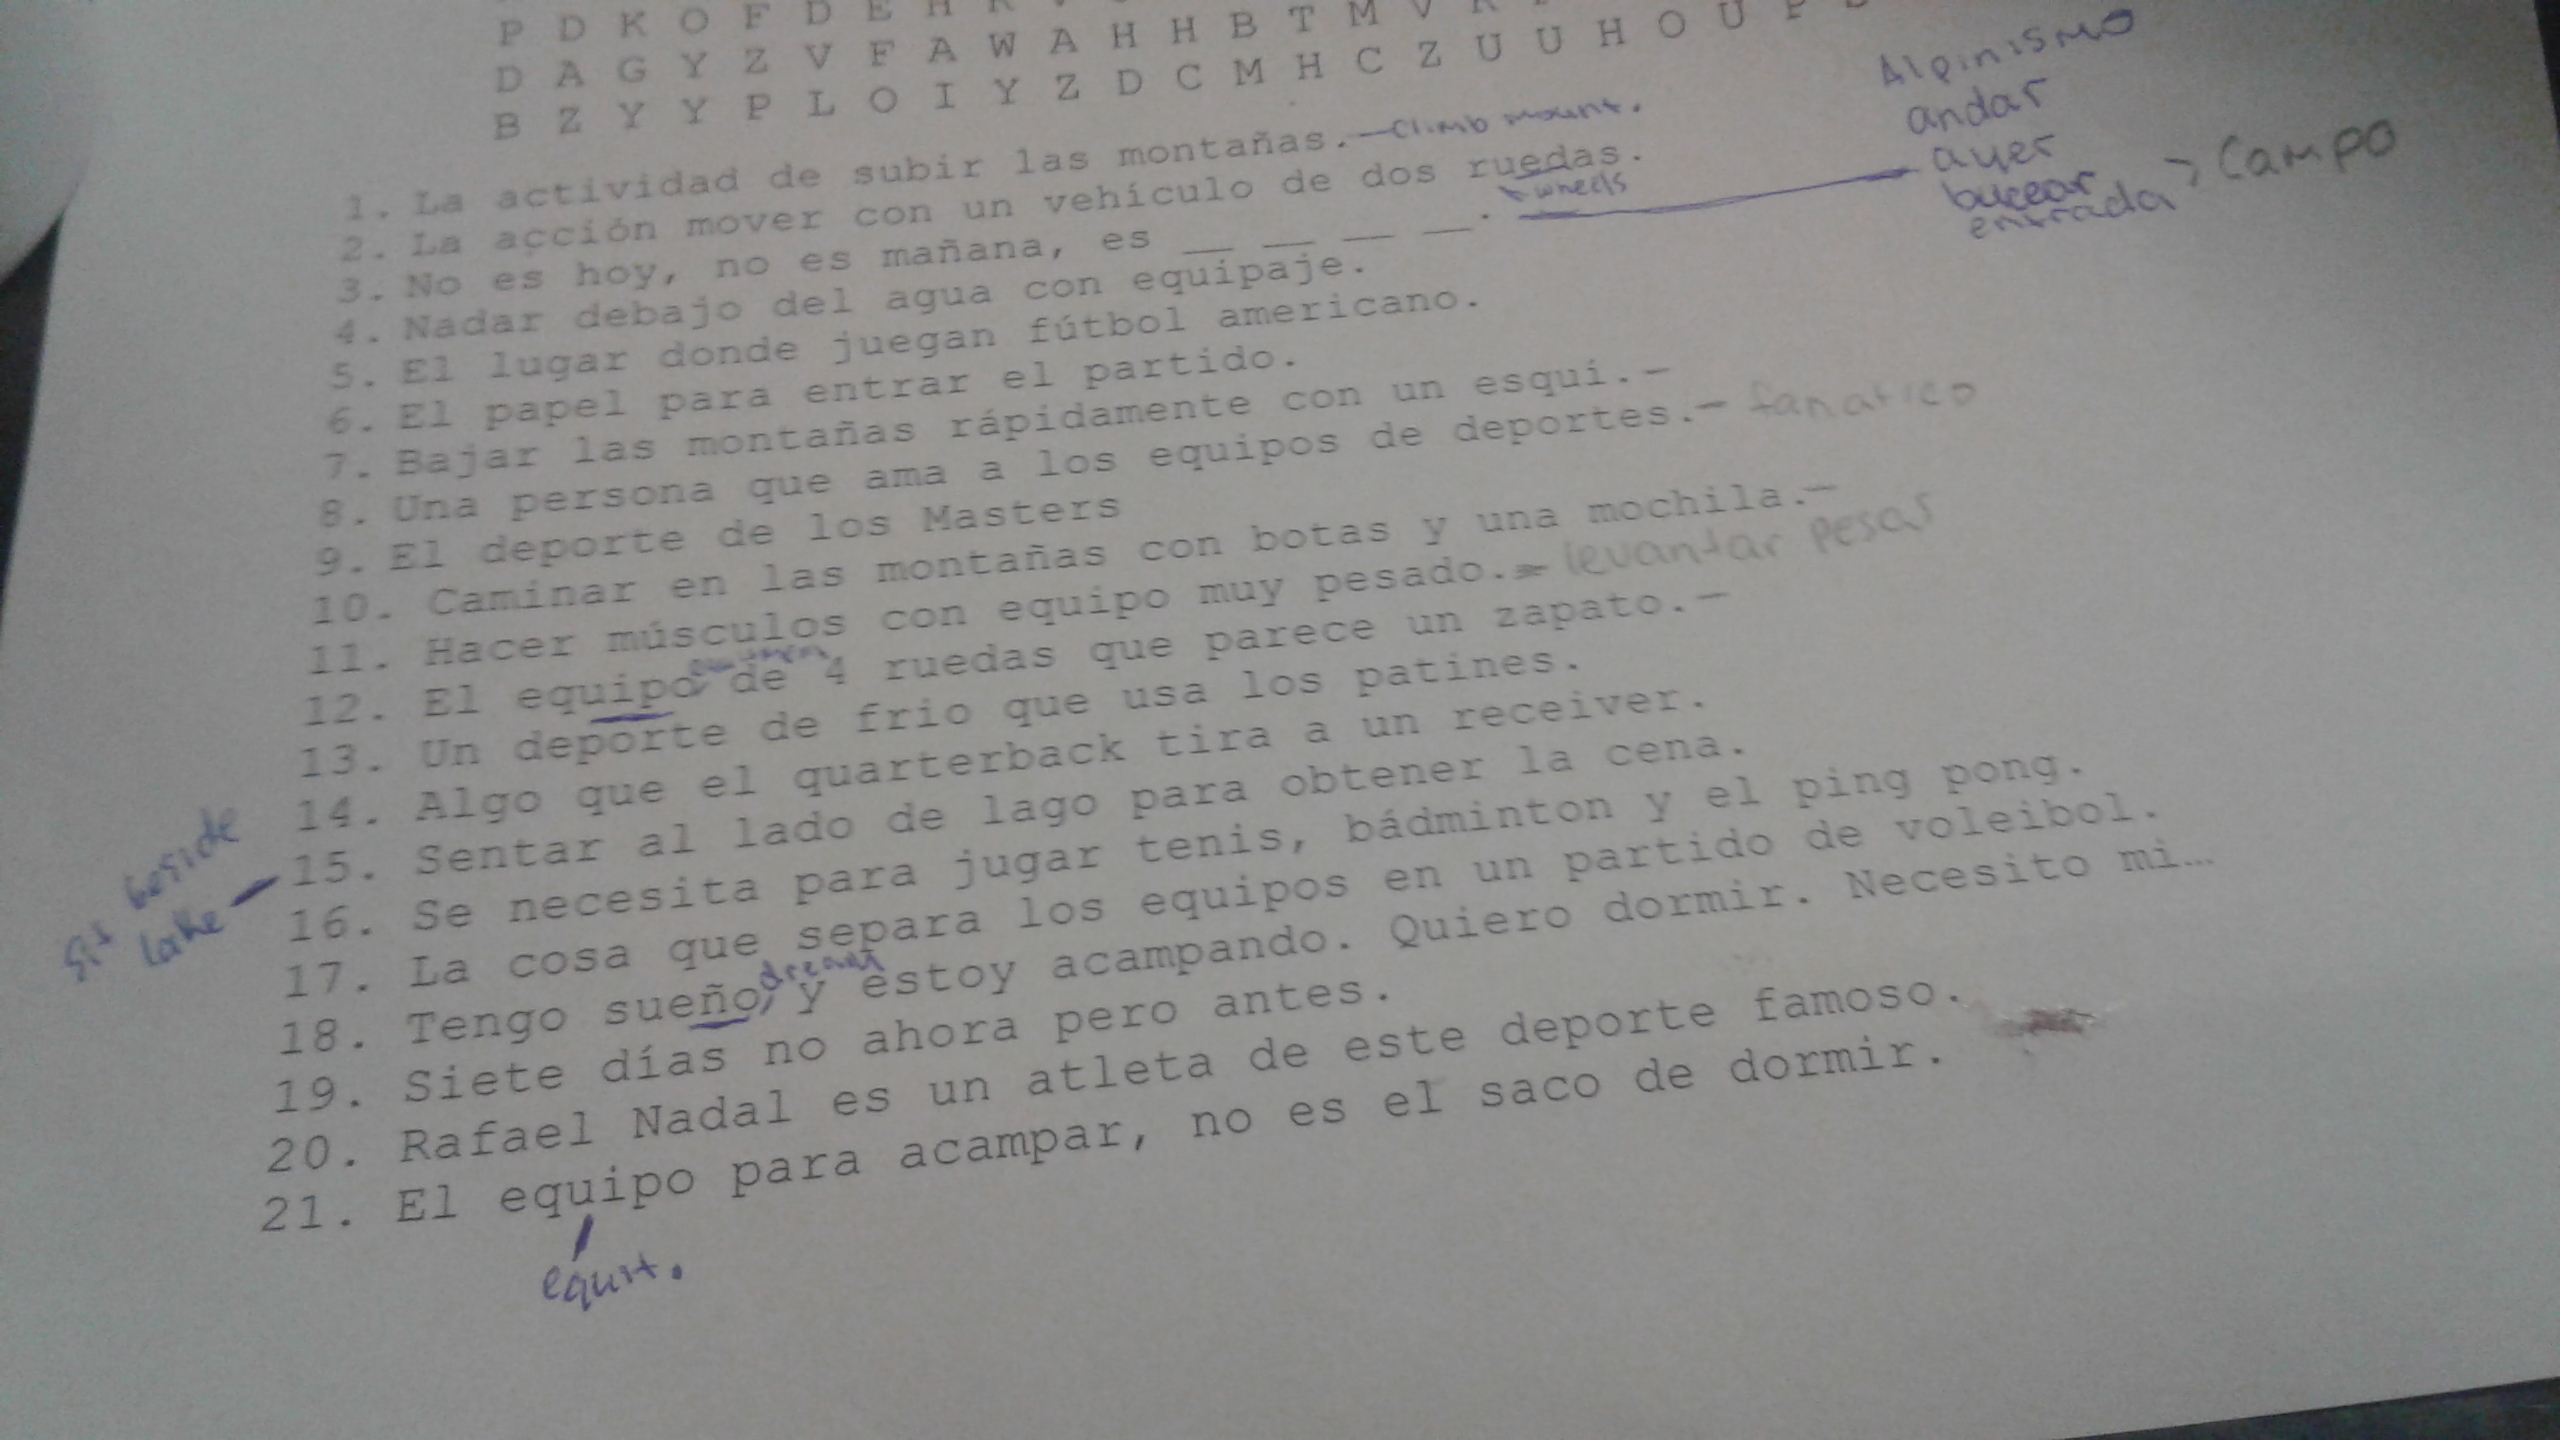 P D K O F D E H
D A G Y Z V F A W A H H B T M V
B Z Y Y P L O I Y Z D C M H C Z U U H O U
Alpinismo
andar
ayer
bucear
entrada > Campo
1. La actividad de subir las montañas. - Climb mount.
2. La acción mover con un vehículo de dos ruedas.
wheels
3. No es hoy, no es mañana, es __ __ __ __.
4. Nadar debajo del agua con equipaje.
5. El lugar donde juegan fútbol americano.
6. El papel para entrar el partido.
7. Bajar las montañas rápidamente con un esquí. -
8. Una persona que ama a los equipos de deportes. - fanatico
9. El deporte de los Masters
10. Caminar en las montañas con botas y una mochila. -
11. Hacer músculos con equipo muy pesado. - levantar pesas
12. El equipo de 4 ruedas que parece un zapato. -
13. Un deporte de frio que usa los patines.
14. Algo que el quarterback tira a un receiver.
sit beside
lake
15. Sentar al lado de lago para obtener la cena.
16. Se necesita para jugar tenis, bádminton y el ping pong.
17. La cosa que separa los equipos en un partido de voleibol.
dream
18. Tengo sueño, y estoy acampando. Quiero dormir. Necesito mi…
19. Siete días no ahora pero antes.
20. Rafael Nadal es un atleta de este deporte famoso.
21. El equipo para acampar, no es el saco de dormir.